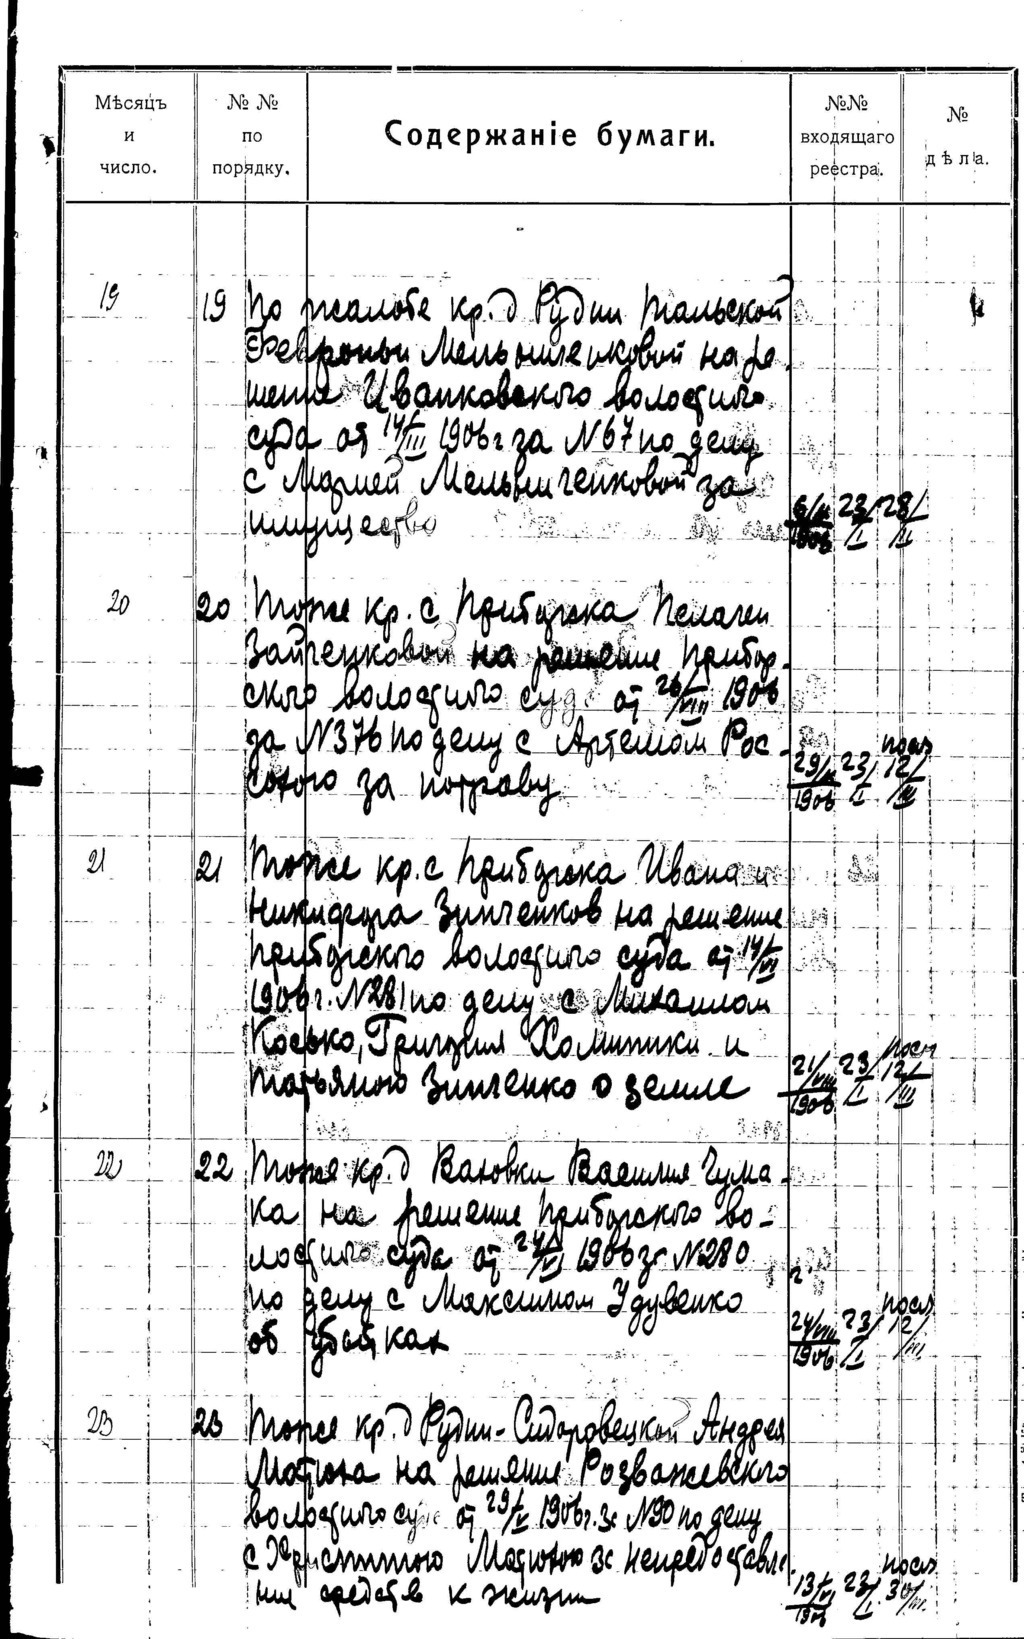 Мѣсяцъ и число.
№ № по порядку.
Содержаніе бумаги.
№№ входящаго реестра.
№ дѣла.
19 19 По жалобе кр. д Рудни Тальской
Февроньи Мельниченковой на ре
шение Иванковского волостного
суда от 14/III 1906 г за №67 по делу
с Марией Мельниченковой за
имущество
6/ 1906 23/I 28/II
20 20 Тоже кр. с Прибурска Пелагеи
Зайченковой на решение Прибор-
ского волостного суд от 26/VIII 1906
за №376 по делу с Артемом Рос-
сохою за потраву
29/ 1906 23/I посл 12/III
21 21 Тоже кр. с Прибурска Ивана и
Никифора Зинченков на решение
Прибурского волостного суда от 14/VI
1906 г. №281 по делу с Михаилом
Коско, Григорием Хоминики и
Татьяною Зинченко о земле
21/VIII 1906 23/I посл 12/III
22 22 Тоже кр. дВаховки Василия Чума-
ка на решение Прибурского во-
лостного суда от 24/VI 1906 за №280
по делу с Максимом Удувенко
об убытках
24/VIII 1906 23/I посл 12/III
23 23 Тоже кр. д Рудни-Сидоровецкой Андрея
Матюха на решение Розважевского
волостного су от 29/V 1906 г. за №90 по делу
с Христиною Матюхою за непредоставле-
ние средств к жизни
13/VI 1906 23/I посл 30/III